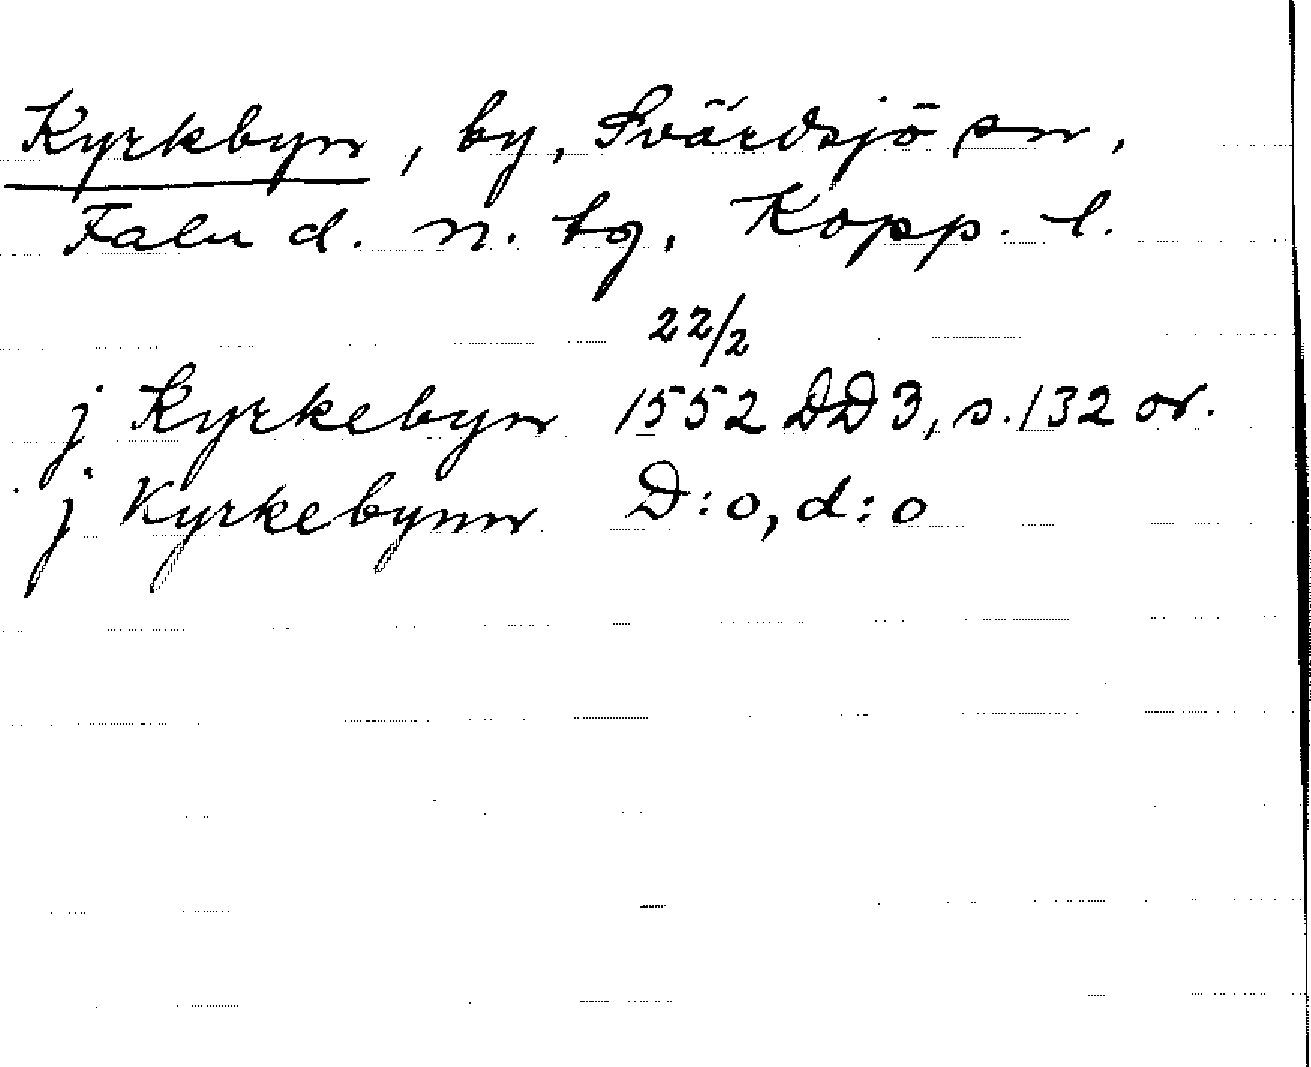 Kyrkbyn, by, Svärdsjö sn,
Falu d. n. bg, Kopp. l.
22/2
j Kyrkebyn 1552 DD3, s.132 or.
j Kyrkebynn D:o, d:o